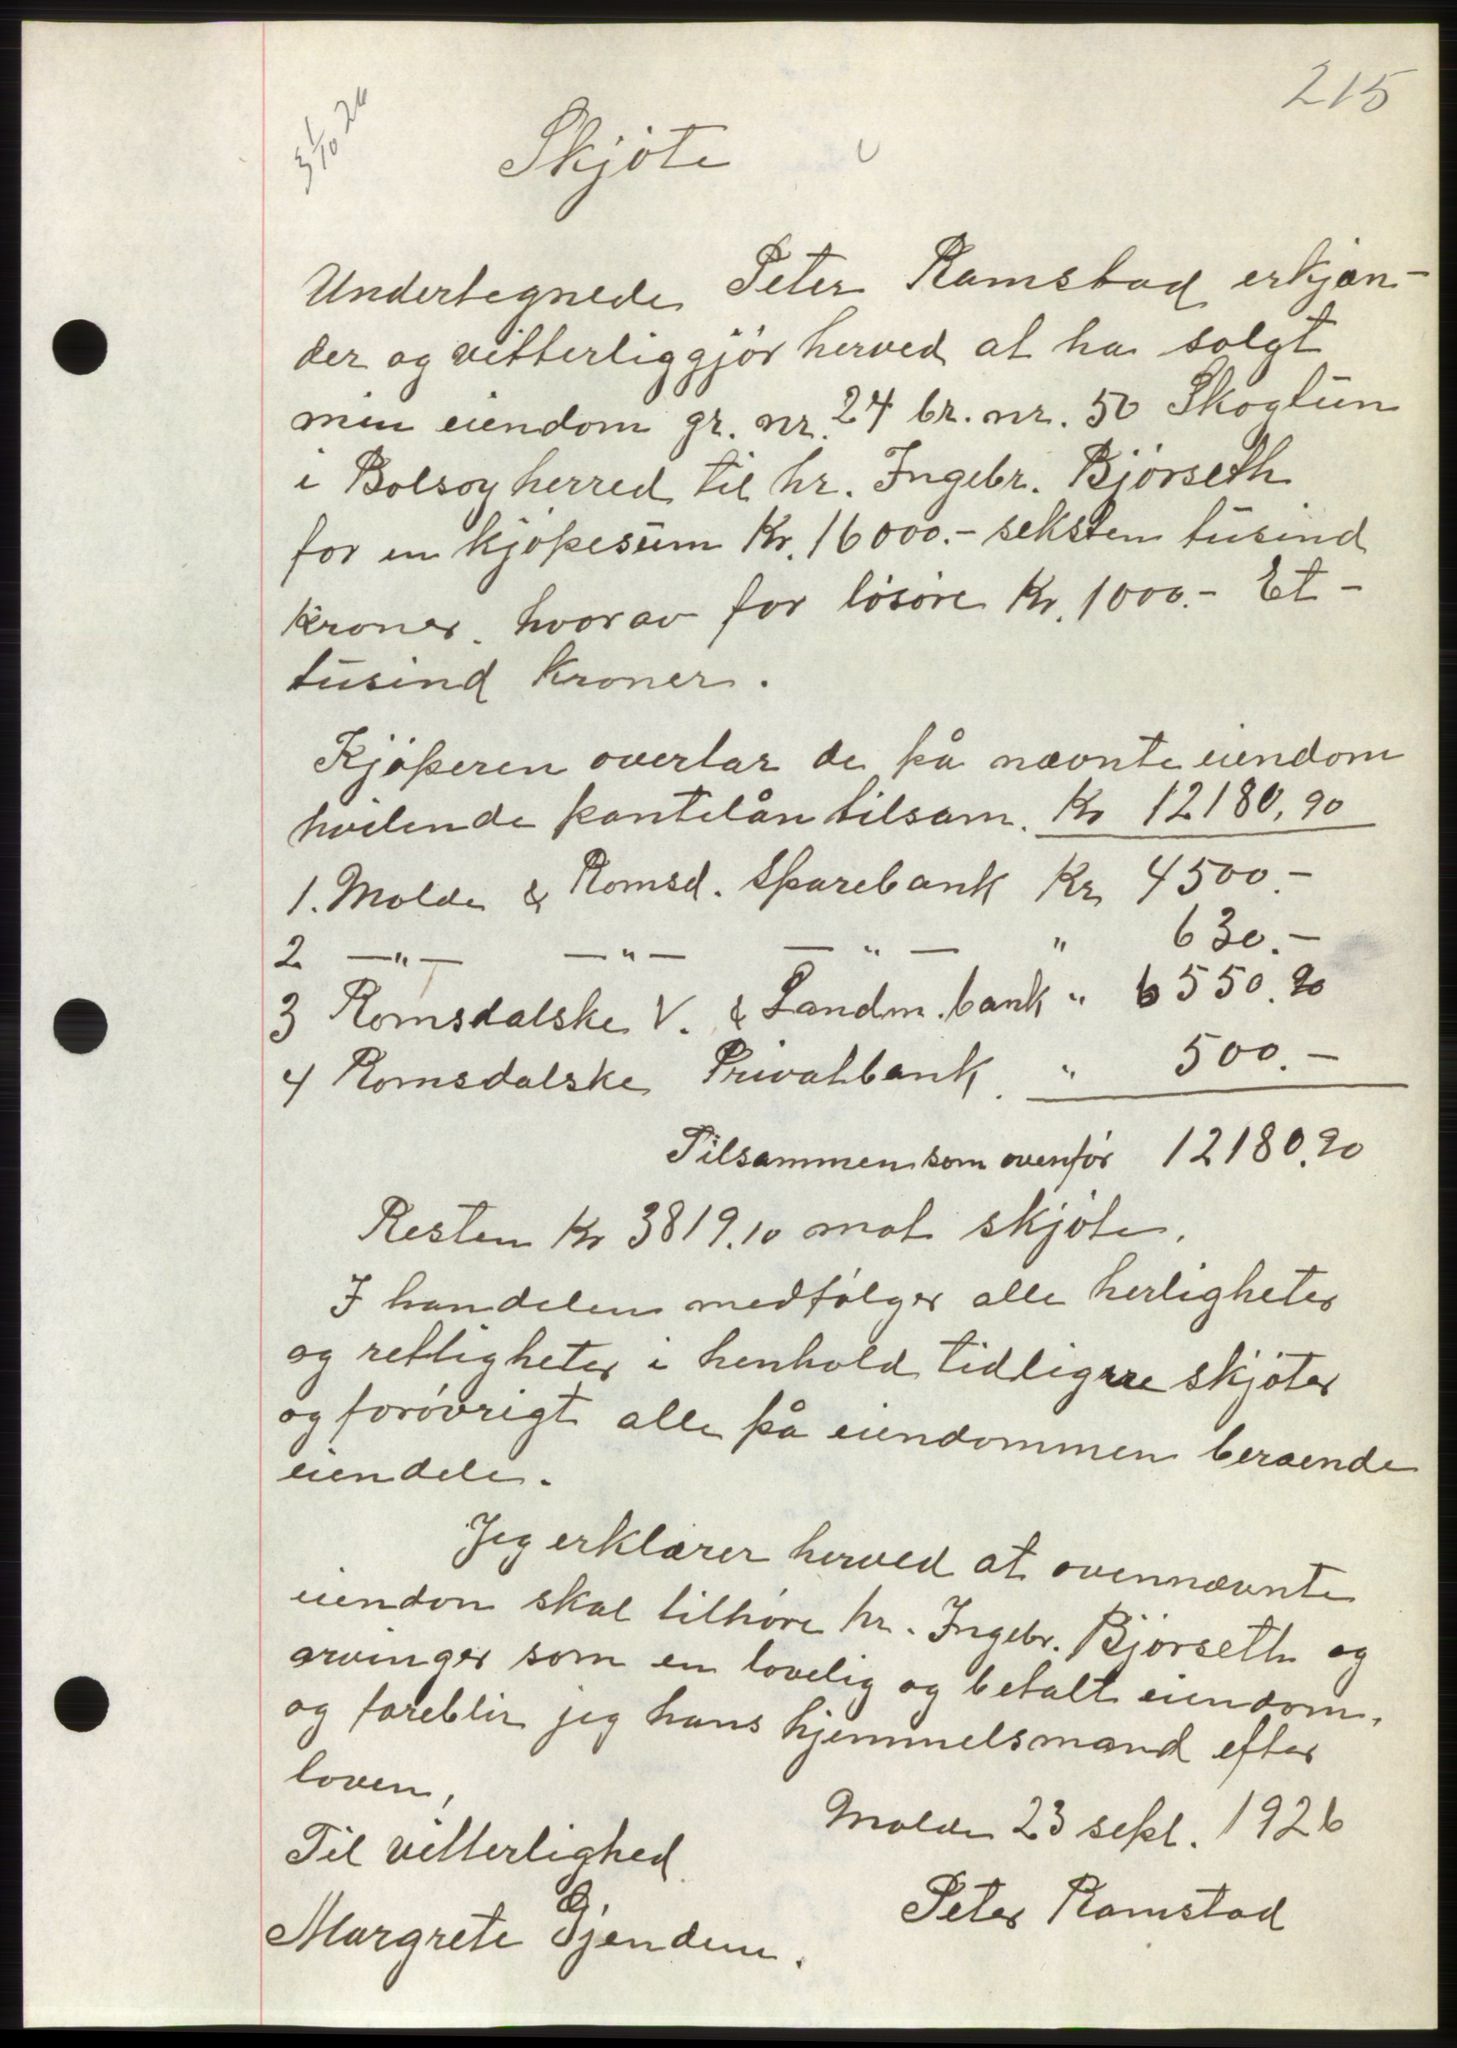 215
Skjöte
Undertegnede Peter Ramstad erkjæn-
der og vitterliggjör herved at ha solgt
min eiendom gr. nr. 24 br. nr. 50 Skogtun
i Bolsöy herred til hr. Ingebr. Björseth
for en kjöpesum Kr. 16000.- seksten tusind
kroner. hvorav for lösöre Kr. 1000.- Et-
tusind kroner.
Kjöperen overtar de på nævnte eiendom
hvilende pantelån tilsam. Kr 12180,90
1. Molde & Romsd. Sparebank Kr 4500.-
2 —"— —"— —"— " 630.-
3 Romsdalske V. & Landm. bank " 6550.90
4 Romsdalske Privatbank. " 500.-
Tilsammen som ovenför 12180.90
Resten Kr 3819.10 mot skjöte.
I handelen medfölger alle herligheter
og rettigheter i henhold tidligere skjöter
og forövrigt alle på eiendommen beroende
eiendele.
Jeg erklærer herved at ovennævnte
eiendon skal tilhöre hr. Ingebr. Björseth og
arvinger som en lovelig og betalt eiendom,
og foreblir jeg hans hjemmelsmand efter
loven,
Molde 23 sept. 1926
Til vitterlighed
Peter Ramstad
Margrete Gjendem.